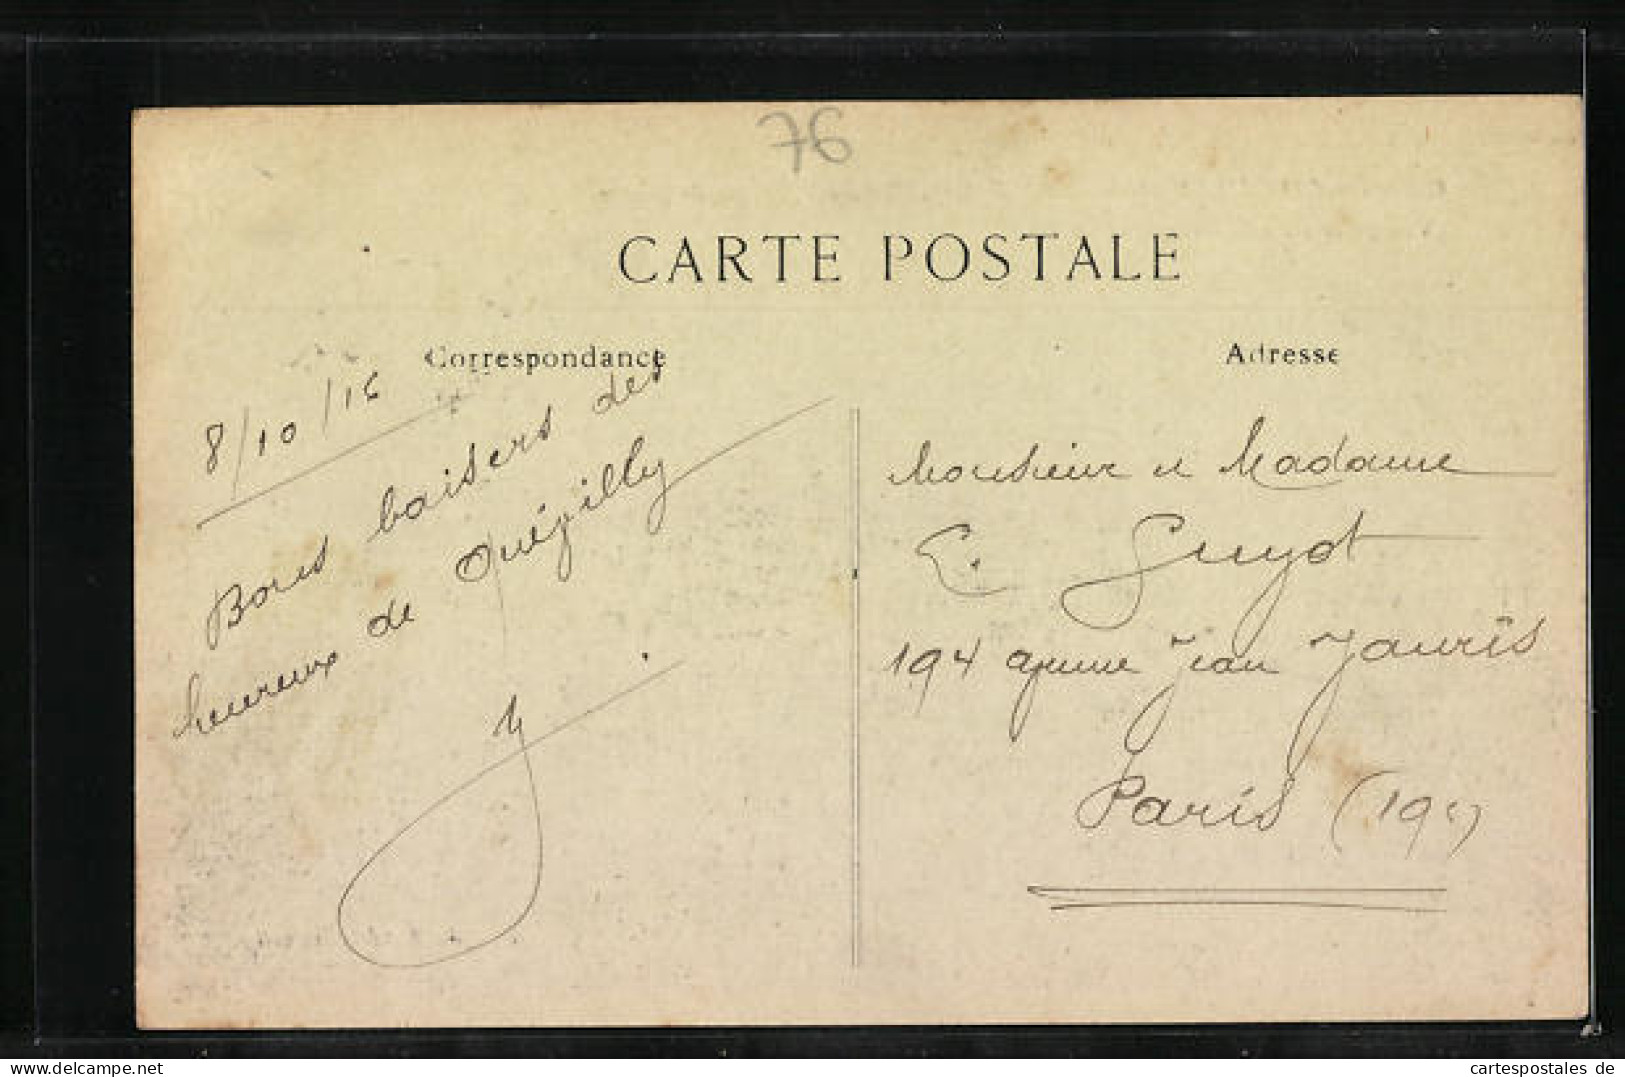 76
CARTE POSTALE
Correspondance
8/10/16
Bons baisers des
heureux de Quévilly
Adresse
Monsieur et Madame
E. Guyot
194 avenue Jean Jaurès
Paris (19e)
cartespostales de